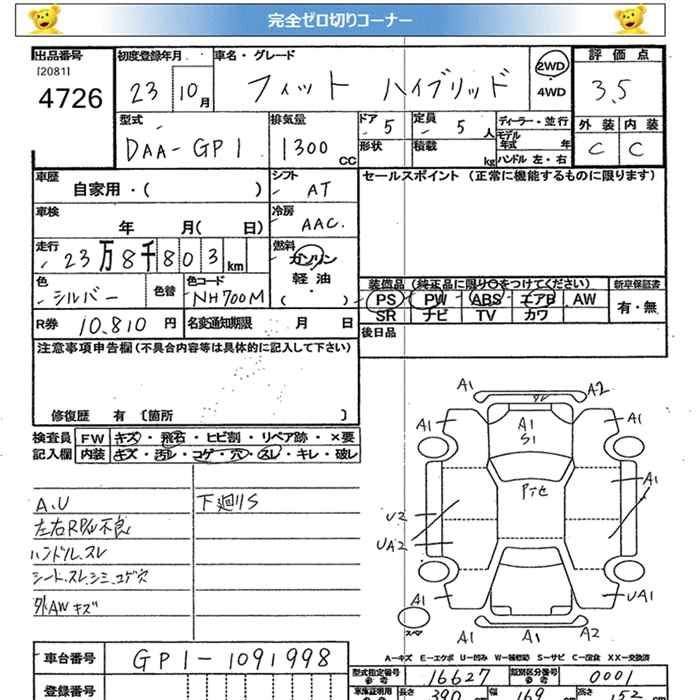 完全ゼロ切りコーナー
出品番号 初度登録年月 車名・グレード 2WD 評価点
[2081]
4726 23 10月 フィット ハイブリッド 4WD 3.5
型式 排気量 ドア 5 定員 5人 ディーラー・並行 外装 内装
モデル年式 年
DAA-GP1 1300CC 形状 積載 kg ハンドル左・右 C C
車歴 自家用・( ) シフト AT セールスポイント (正常に機能するものに限ります)
車検 年 月( 日) 冷房 AAC.
走行 23万8千803km 燃料 ガソリン
軽油
( )
装備品 (純正品に限り○をつけてください) 新車保証書
色 シルバー 色替 色コード NH700M PS PW ABS エアB AW 有・無
R券 10.810円 名変通知期限 月 日 SR ナビ TV カワ
注意事項申告欄 (不具合内容等は具体的に記入して下さい) 後日品
修復歴 有 [箇所 ]
検査員 FW キズ・飛石・ヒビ割・リペア跡・×要
記入欄 内装 キズ・汚レ・コゲ・穴・スレ・キレ・破レ
A.U 下廻りS
左右RP/W不良
ハンドル.スレ
シート.スレ.シミ.コゲ穴
外AWキズ
A1 A2
A1 A1 A1
S1
A1
U2
UA2
A1 UA1
スペア A1 A1 A2
A-キズ E-エクボ U-凹み W-補修跡 S-サビ C-腐食 XX-交換済
車台番号 GP1-1091998
型式指定番号 参考 16627 類別区分番号 参考 0001
登録番号
車庫証明用 参考 長さ 390cm 幅 169cm 高さ 152cm